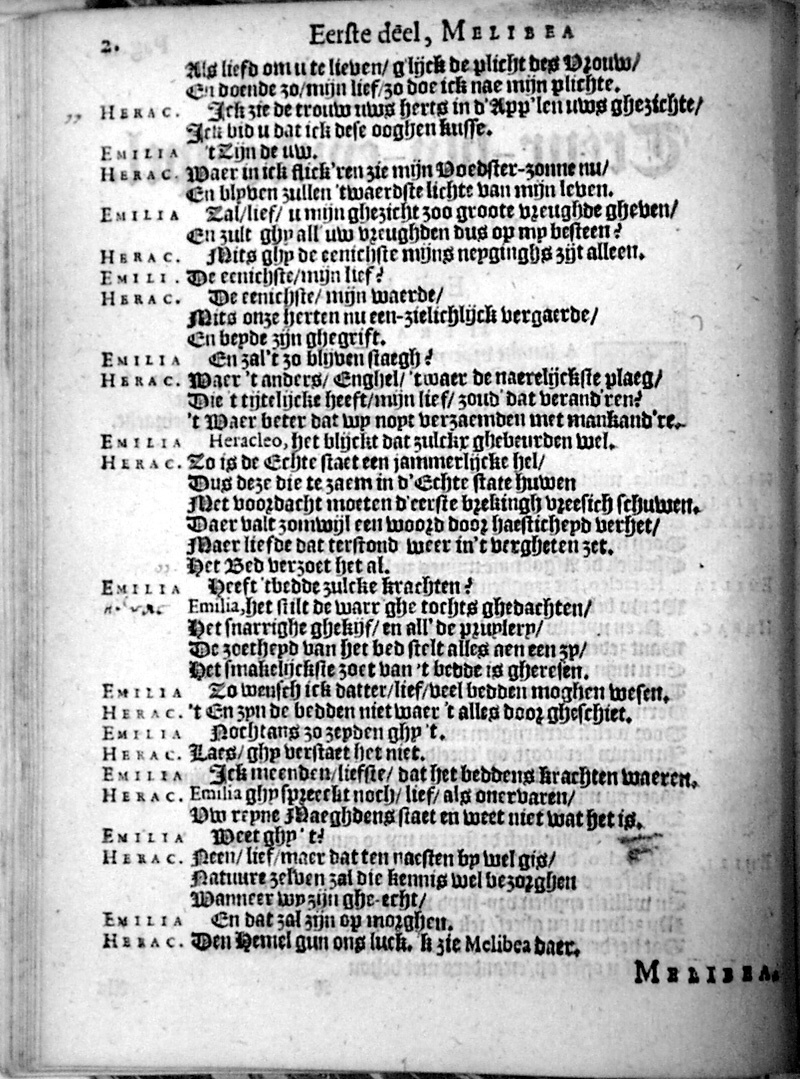 2. Eerste déel, MELIBEA
Als liefd om u te lieven/ g'lijck de plicht des Vrouw/
En doende zo/mijn lief/zo doe ick nae mijn plichte.
,, HERAC. Ick zie de trouw uws herts in d'App'len uws ghezichte/
Ick bid u dat ick dese ooghen kusse.
EMILIA 't Zijn de uw.
HERAC. Waer in ick flick'ren zie mijn Voedster-zonne nu/
En blyven zullen 'twaerdste lichte van mijn leven.
EMILIA Zal/lief/ u mijn ghezicht zoo groote vreughde gheven/
En zult ghy all' uw vreughden dus op my besteen?
HERAC. Mits ghy de eenichste mijns neyginghs zijt alleen.
EMILI. De eenichste/mijn lief?
HERAC. De eenichste/ mijn waerde/
Mits onze herten nu een-zielichlijck vergaerde/
En beyde zijn ghegrift.
EMILIA En zal't zo blijven staegh?
HERAC. Waer 't anders/ Enghel/ 'twaer de naerelijckste plaeg/
Die 't tijtelijcke heeft/mijn lief/ zoud' dat verand'ren?
't Waer beter dat wy noyt verzaemden met mankand're.
EMILIA Heracleo, het blijckt dat zulckx ghebeurden wel.
HERAC. Zo is de Echte staet een jammerlijcke hel/
Dus deze die te zaem in d'Echte state huwen
Met voordacht moeten d'eerste brekingh vreesich schuwen.
Daer valt zomwijl een woord door haesticheyd verhet/
Maer liefde dat terstond weer in't vergheten zet.
,, Het Bed verzoet het al.
EMILIA Heeft 'tbedde zulcke krachten?
Emilia, het stilt de warr'ghe tochts ghedachten/
Het snarrighe ghekijf/ en all' de pruylery/
De zoetheyd van het bed stelt alles aen een zy/
Het smakelijckste zoet van 't bedde is gheresen.
EMILIA Zo wensch ick datter/lief/veel bedden moghen wesen.
HERAC. 't En zyn de bedden niet waer 't alles door gheschiet.
EMILIA Nochtans zo zeyden ghy 't.
HERAC. Laes/ ghy verstaet het niet.
EMILIA Ick meenden/liefste/ dat het beddens krachten waeren.
HERAC. Emilia ghy spreeckt noch/ lief/ als onervaren/
Uw reyne Maeghdens staet en weet niet wat het is.
EMILIA Weet ghy 't?
HERAC. Neen/ lief/maer dat ten naesten by wel gis/
Natuure zelven zal die kennis wel bezorghen
Wanneer wy zijn ghe-echt/
EMILIA En dat zal zijn op morghen.
HERAC. Den Hemel gun ons luck. 'k zie Melibea daer.
MELIBEA.